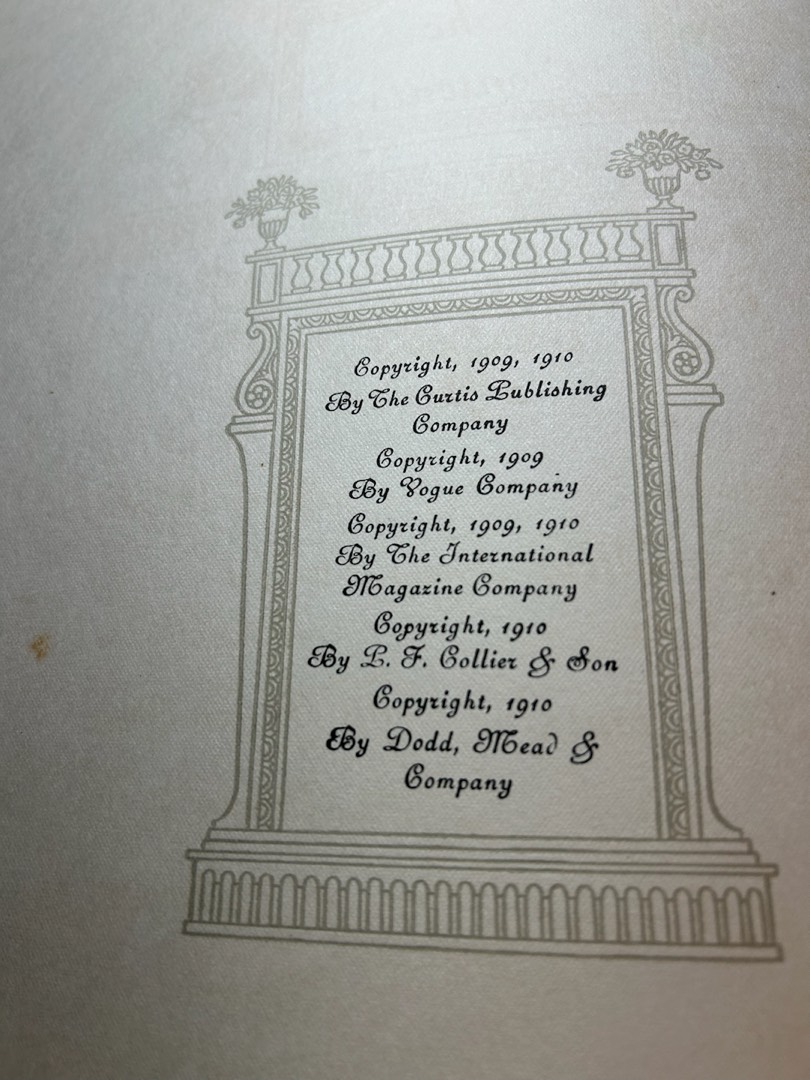 Copyright, 1909, 1910
By The Curtis Publishing
Company
Copyright, 1909
By Vogue Company
Copyright, 1909, 1910
By The International
Magazine Company
Copyright, 1910
By P. F. Collier & Son
Copyright, 1910
By Dodd, Mead &
Company